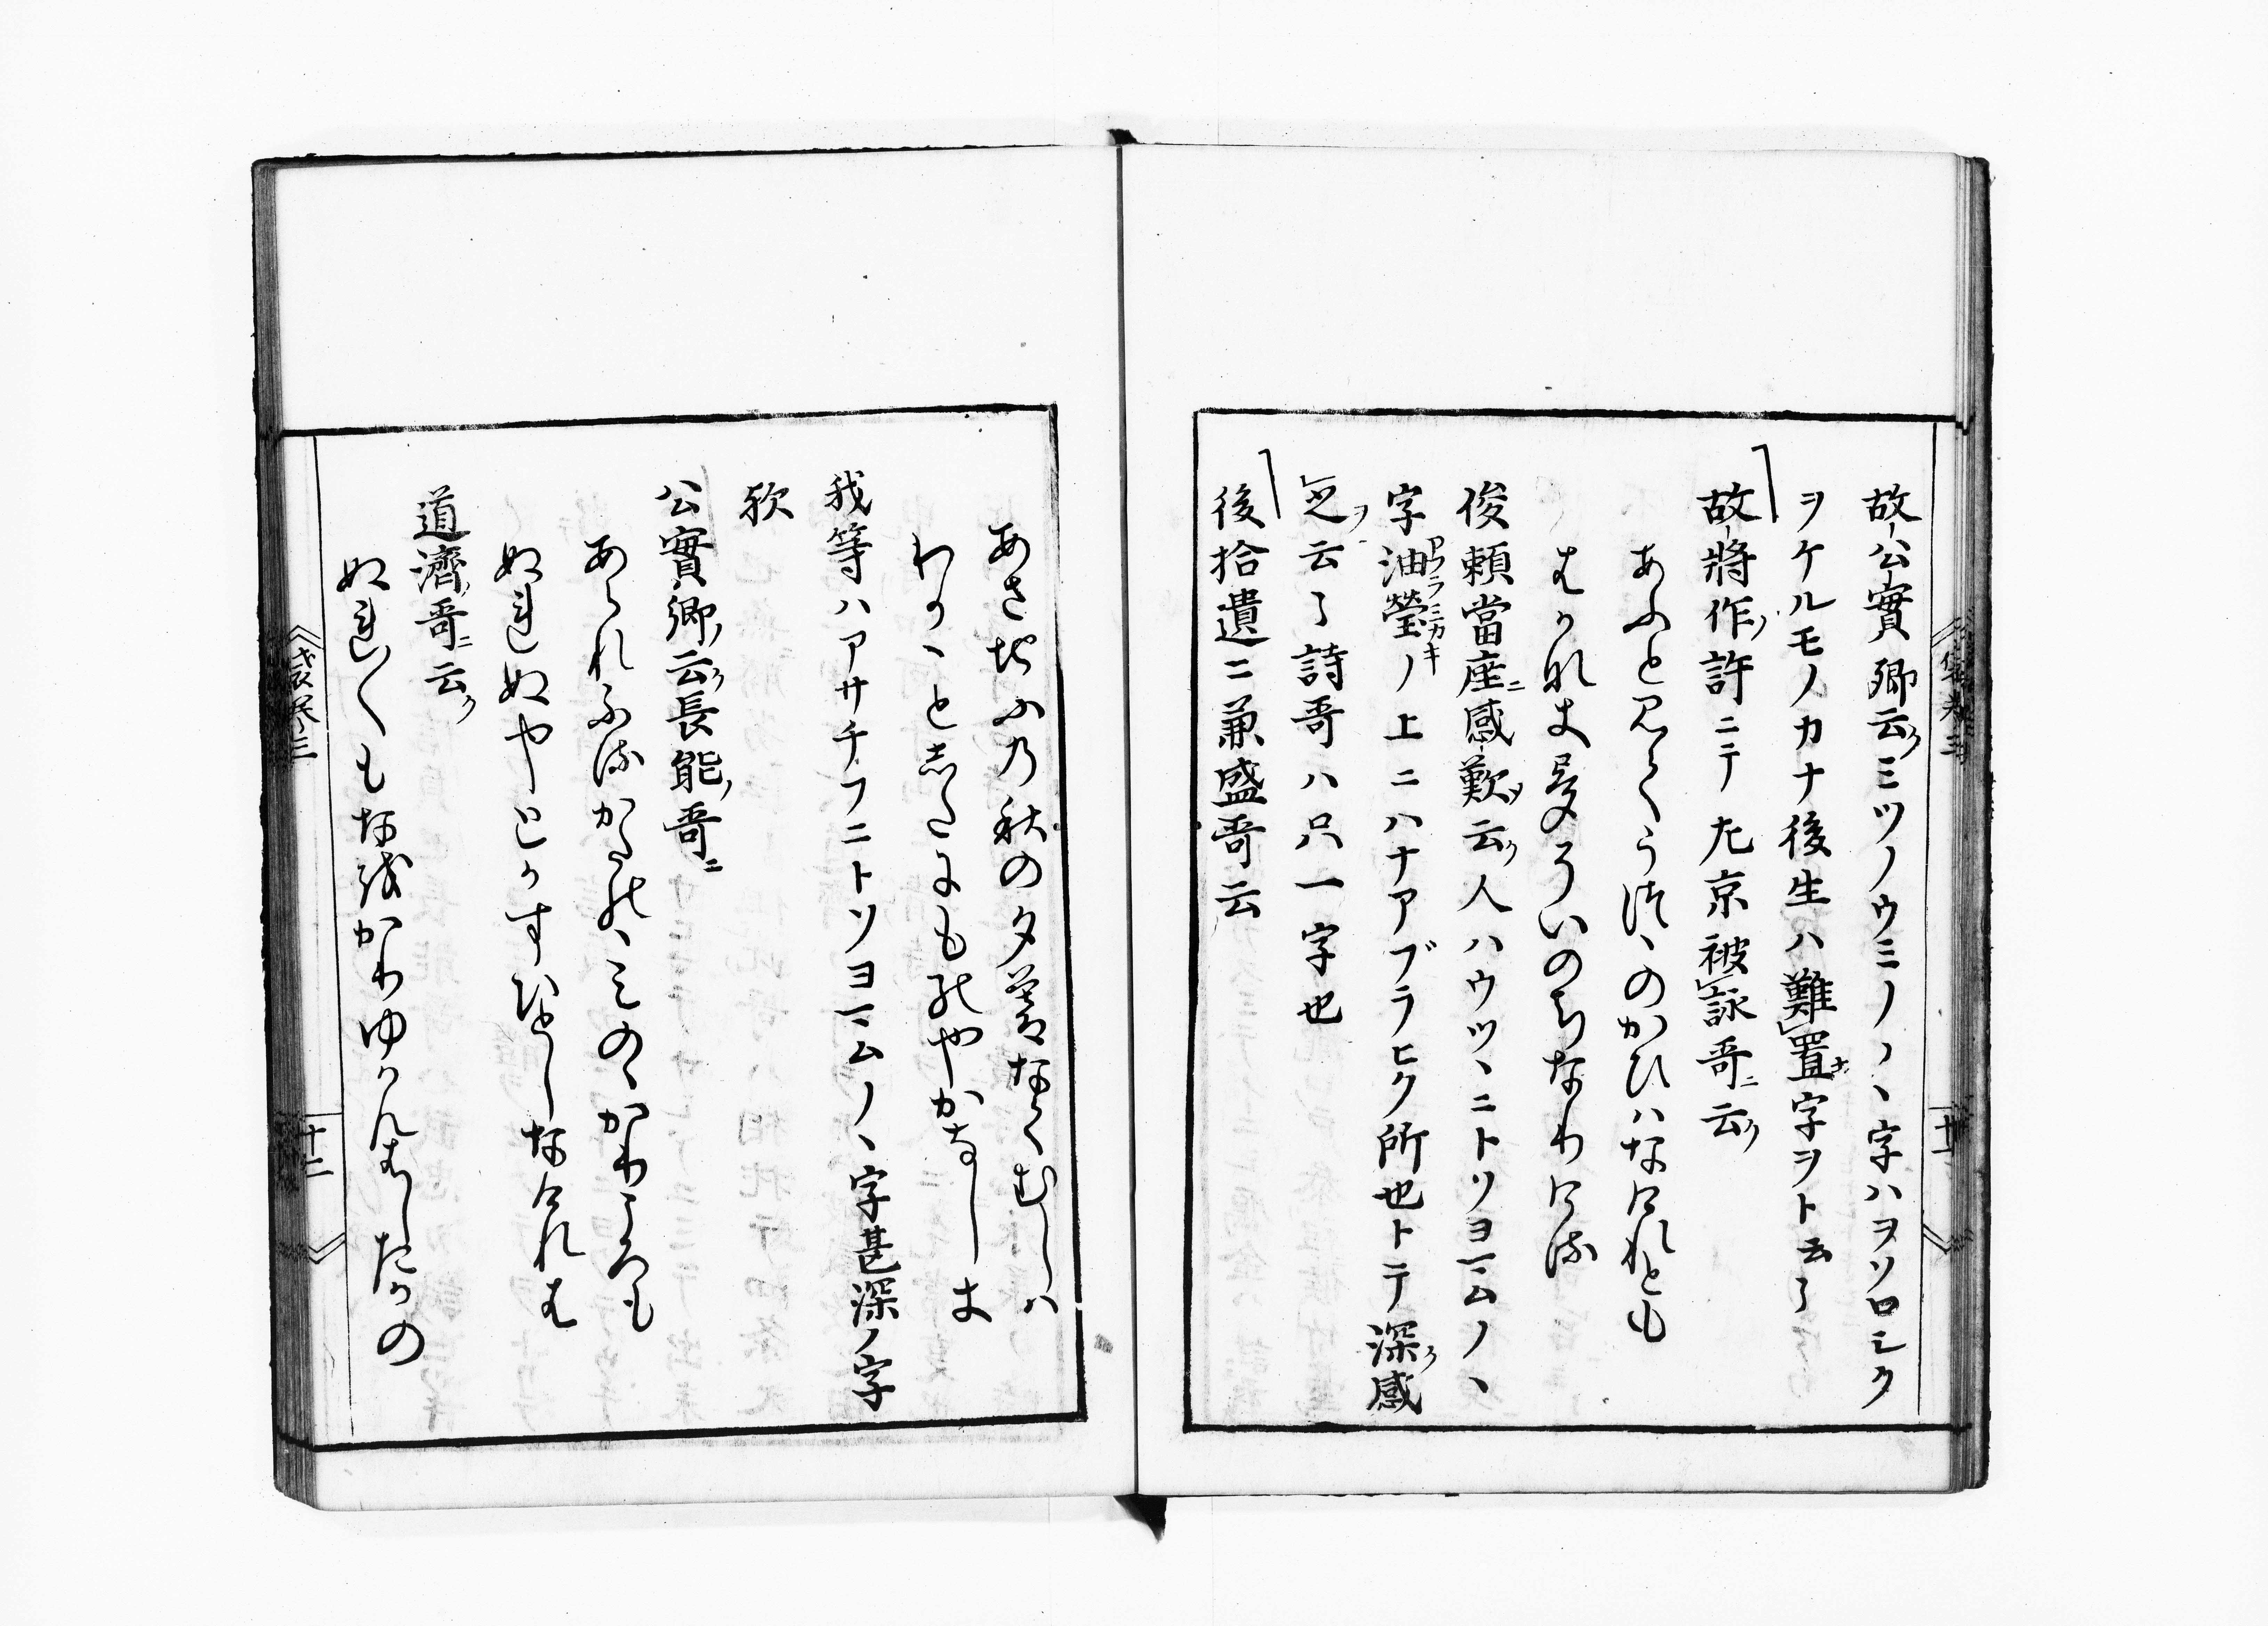 故公實卿云ク ミツノウミノヽ字ハヲソロシク
ヲケルモノカナ後生ハ難置字ヲトヽ云々
故將作ノ許ニテ左京被詠哥ニ云ク
あふと見てうつゝのかひはなけれとも
はかなき夢そいのちなりける
俊頼當座ニ感歎シ云ク人ハウツヽニトソヨマムノヽ
字油瑩ノ上ニハナアブラヒク所也トテ深ク感
之ヲ云々詩哥ハ只一字也
後拾遺ニ兼盛哥云
あさちふの秋の夕暮なくむしは
わかことしたにものやかなしき
我等ハアサチフニトソヨマムノヽ字甚深ノ字
歟
公實卿ノ云ク長能ノ哥ニ
あられふるかたのゝみのゝかりころも
ぬれぬやとかす人しなけれは
道濟ノ哥ニ云ク
ぬれ〳〵もなをかりゆかんはしたかの
十二